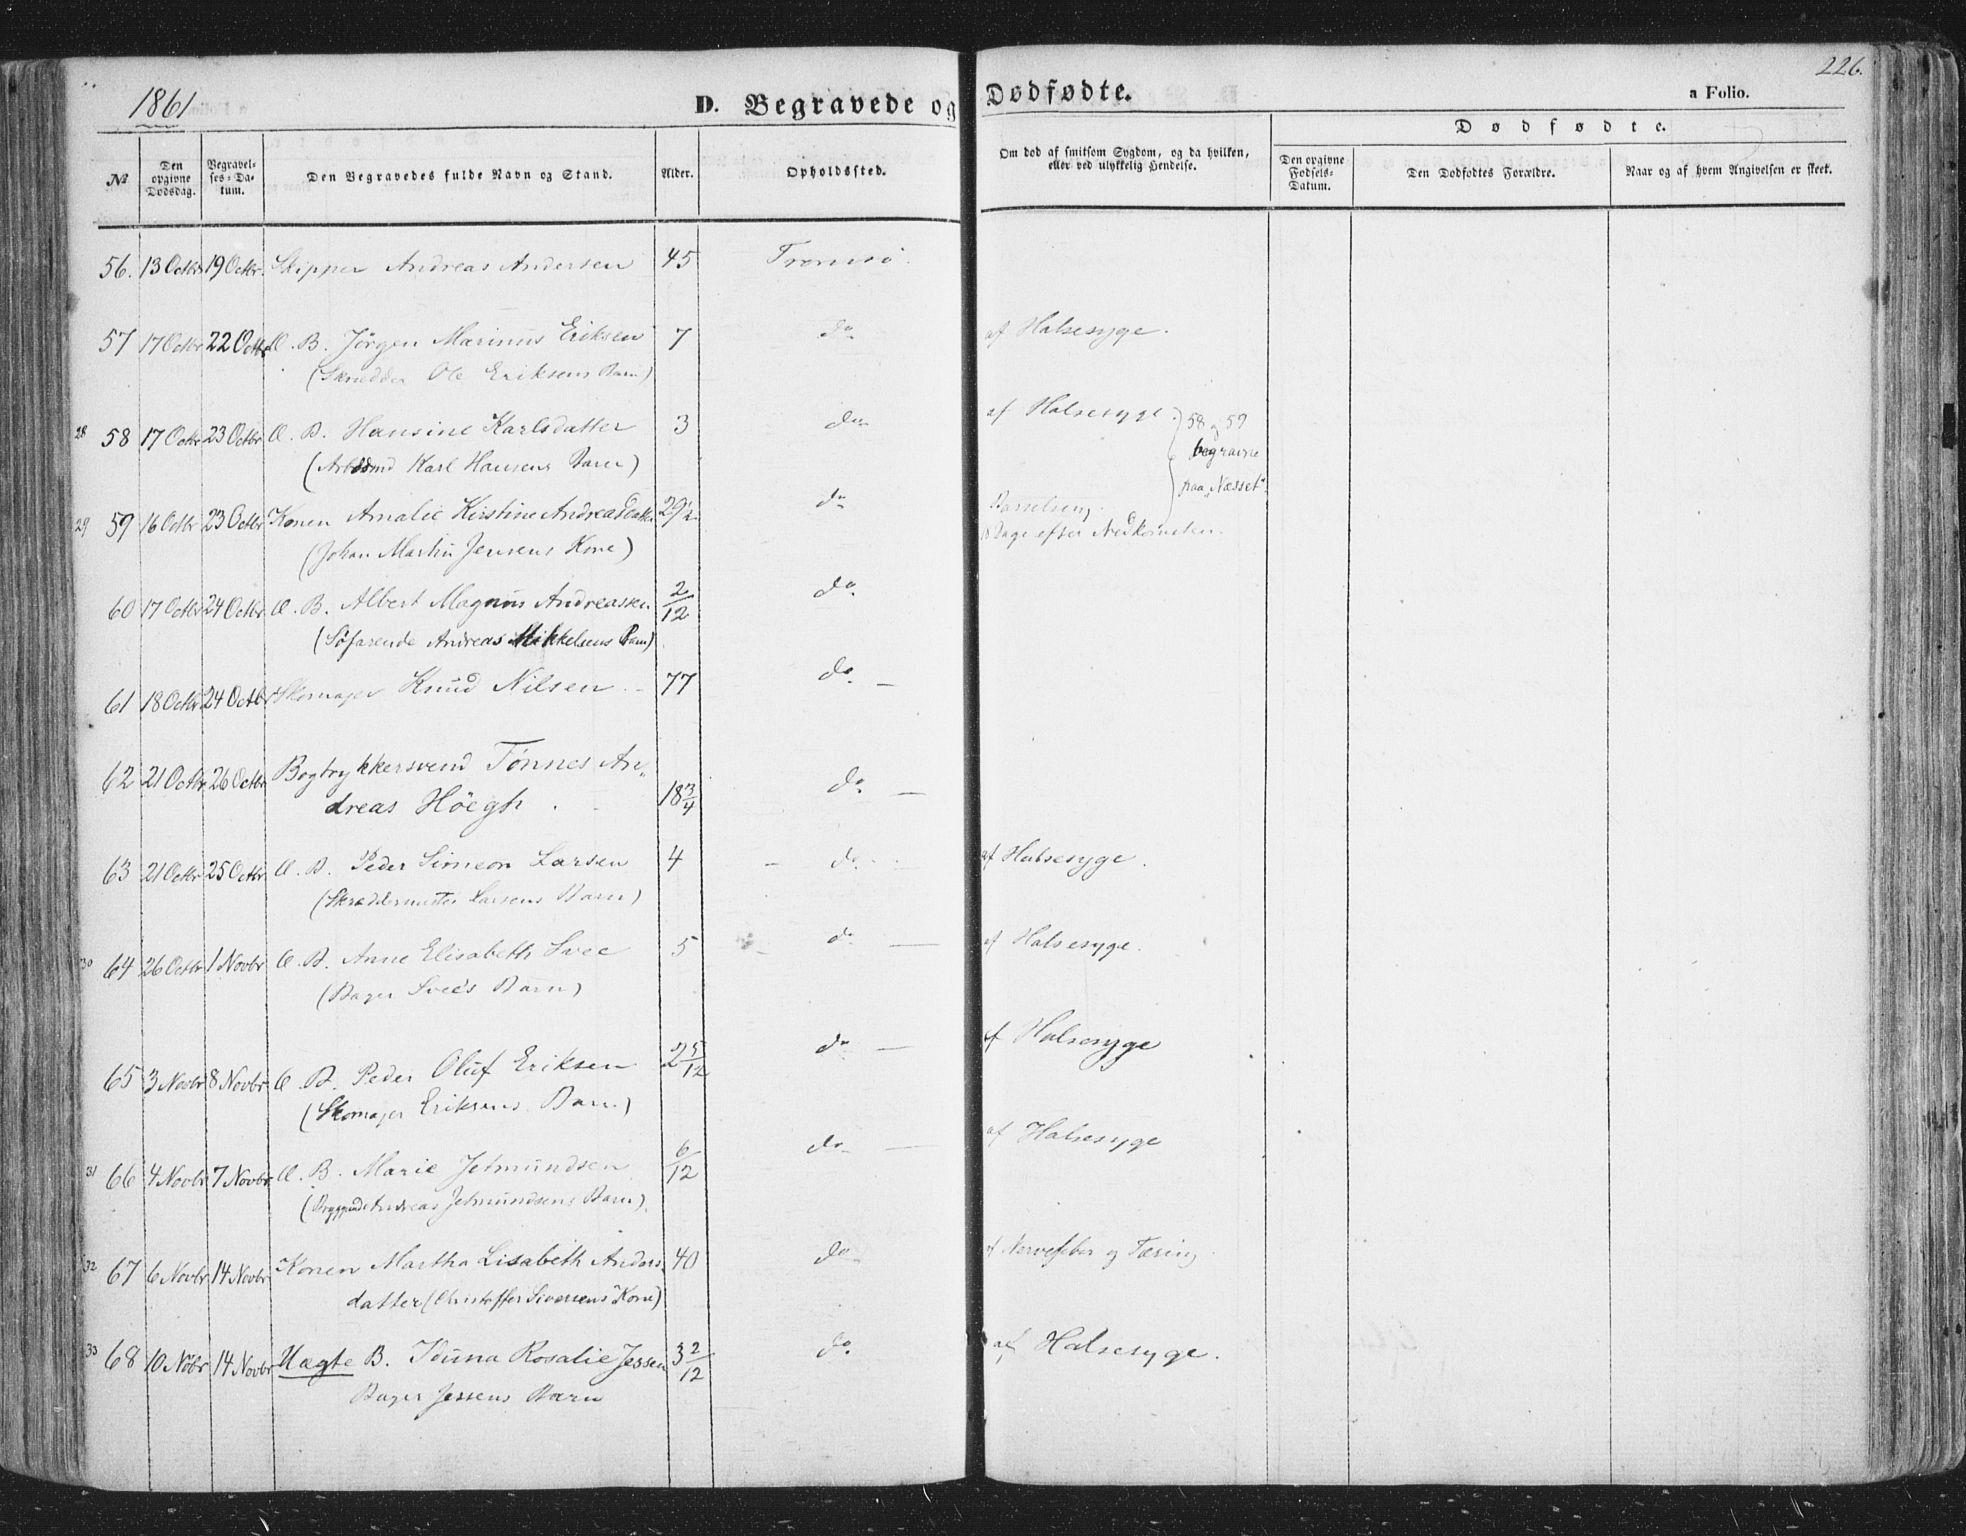 1861
D. Begravede og Dødfødte.
226.
a Folio.
№
Den opgivne Dødsdag.
Begravelses-Datum.
Den Begravedes fulde Navn og Stand.
Alder.
Opholdssted.
Om død af smitsom Sygdom, og da hvilken, eller ved ulykkelig Hendelse.
Dødfødte.
Den opgivne Fødsels-Datum.
Den Dødfødtes Forældre.
Naar og af hvem Angivelsen er skeet.
56. 13 Octbr 19 Octbr. Skipper Andreas Andersen 45 Tromsø.
57 17 Octbr 22 Octbr Æ. B. Jørgen Marinus Eriksen 7 do af Halsesyge.
(Skrædder Ole Eriksens Barn)
28 58 17 Octbr 23 Octbr Æ. B. Hansine Karlsdatter 3 do af Halsesyge. 58 og 59
(Arbdmd Karl Hansens Barn) begravne
paa "Næsset".
29 59 16 Octbr 23 Octbr Konen Amalie Kirstine Andreasdatter 29½ do Barselseng.
(Johan Martin Jensens Kone) 18 Dage efter Nedkomsten.
60 17 Octbr 24 Octbr Æ. B. Albert Magnus Andreassen 2/12 do
(Søfarende Andreas Mikkelsens Barn)
61 18 Octbr 24 Octbr Skomager Knud Nilsen. - 77 do. -
62 21 Octbr 26 Octbr Bogtrykkersvend Tønnes An-
dreas Höegh. 18 3/4 do. -
63 21 Octbr 25 Octbr Æ. B. Peder Simeon Larsen 4 - do. af Halsesyge.
(Skræddermester Larsens Barn)
30 64 26 Octbr 1 Novbr Æ. B. Anne Elisabeth Svee 5 - do - af Halsesyge.
(Bager Svees Barn)
65 3 Novbr 8 Novbr Æ. B. Peder Oluf Eriksen 2 5/12 do - af Halsesyge
(Skomager Eriksens Barn.)
31 66 4 Novbr 7 Novbr Æ. B. Marie Jetmundsen 6/12 do - af Halsesyge
Andreas Jetmundsens Barn).
32 67 6 Novbr 14 Novbr Konen Martha Lisabeth Anders- 40 do af Nervefeber og Tæring.
datter (Christoffer Sivertsens Kone)
33 68 10 Nobr 14 Novbr Uægte B. Iduna Rosalie Jessen 3 2/12 do. af Halsesyge.
Bager Jessens Barn